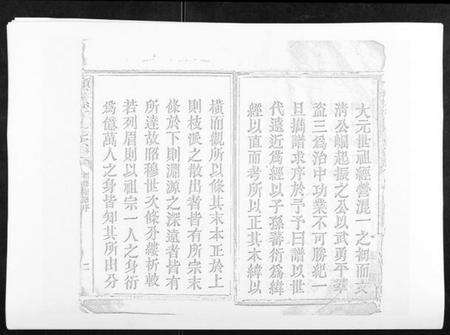 大元世祖經營混一之初而文
清公崛起振之公以武勇平寇
盜三為治中功業不可勝紀一
旦摛譜求序於予予曰譜以世
代遠近為經以子孫蕃衍為緯
經以直而考所以正其本緯以
橫而觀所以條其末本正於上
則枝派之散出者皆有所宗末
條於下則淵源之深遠者皆有
所達故昭穆世次條分縷析較
若列眉則以祖宗一人之身衍
為億萬人之身皆知其所出分